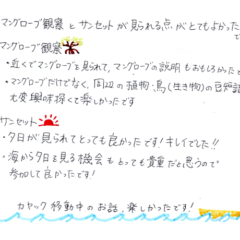 マングローブ観察とサンセットが見られる点がとてもよかった
です
マングローブ観察
・近くでマングローブを見られて、マングローブの説明もおもしろかった
・マングローブだけでなく、周辺の植物・鳥(生き物)の豆知識
も大変興味深くて楽しかったです
サンセット
・夕日が見られてとっても良かったです!キレイでした!!
・海から夕日を見る機会もとっても貴重だと思うので
参加して良かったです!
カヤック移動中のお話、楽しかったです!